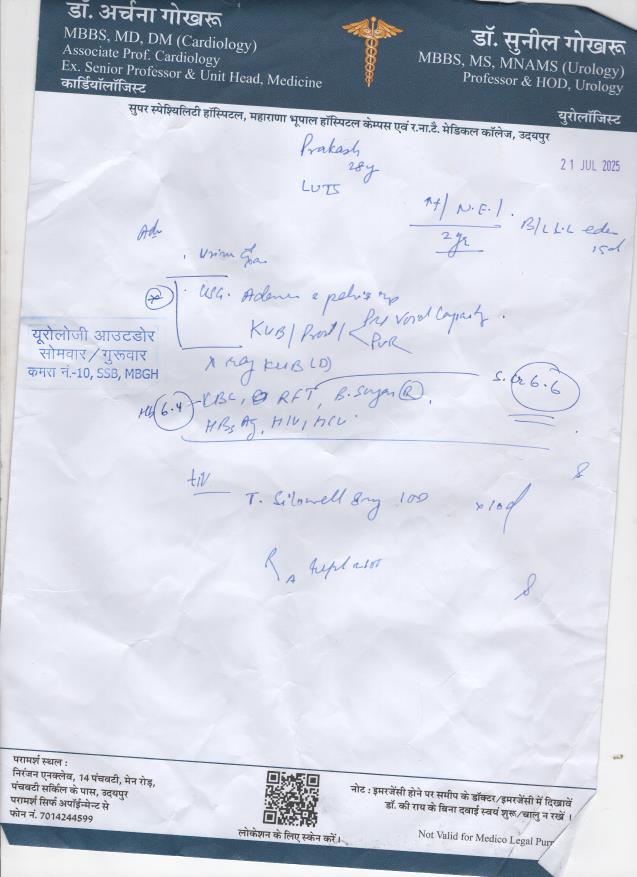 डॉ. अर्चना गोखरू
MBBS, MD, DM (Cardiology)
Associate Prof. Cardiology
Ex. Senior Professor & Unit Head, Medicine
कार्डियॉलॉजिस्ट
डॉ. सुनील गोखरू
MBBS, MS, MNAMS (Urology)
Professor & HOD, Urology
यूरोलॉजिस्ट
सुपर स्पेश्यिलिटी हॉस्पिटल, महाराणा भूपाल हॉस्पिटल केम्पस एवं र.ना.टै. मेडिकल कॉलेज, उदयपुर
Prakash
28y
21 JUL 2025
LUTS
N.E.
B/L L.L
2 yr
Adv
USG. Abdomen
KUB / Prost / Pre Void Capacity
PVR
यूरोलॉजी आउटडोर
सोमवार / गुरूवार
कमरा नं.-10, SSB, MBGH
X ray KUB
S. Cr 6.6
Hb 6.4 CBC, RFT, B. Sugar R,
HBsAg, HIV, HCV
till
T. 8mg 10D
परामर्श स्थल :
निरंजन एनक्लेव, 14 पंचवटी, मेन रोड़,
पंचवटी सर्किल के पास, उदयपुर
परामर्श सिर्फ अपॉईन्मेन्ट से
फोन नं. 7014244599
लोकेशन के लिए स्केन करें।
नोट : इमरजेंसी होने पर समीप के डॉक्टर/इमरजेंसी में दिखावें
डॉ. की राय के बिना दवाई स्वयं शुरू/चालु न रखें ।
Not Valid for Medico Legal